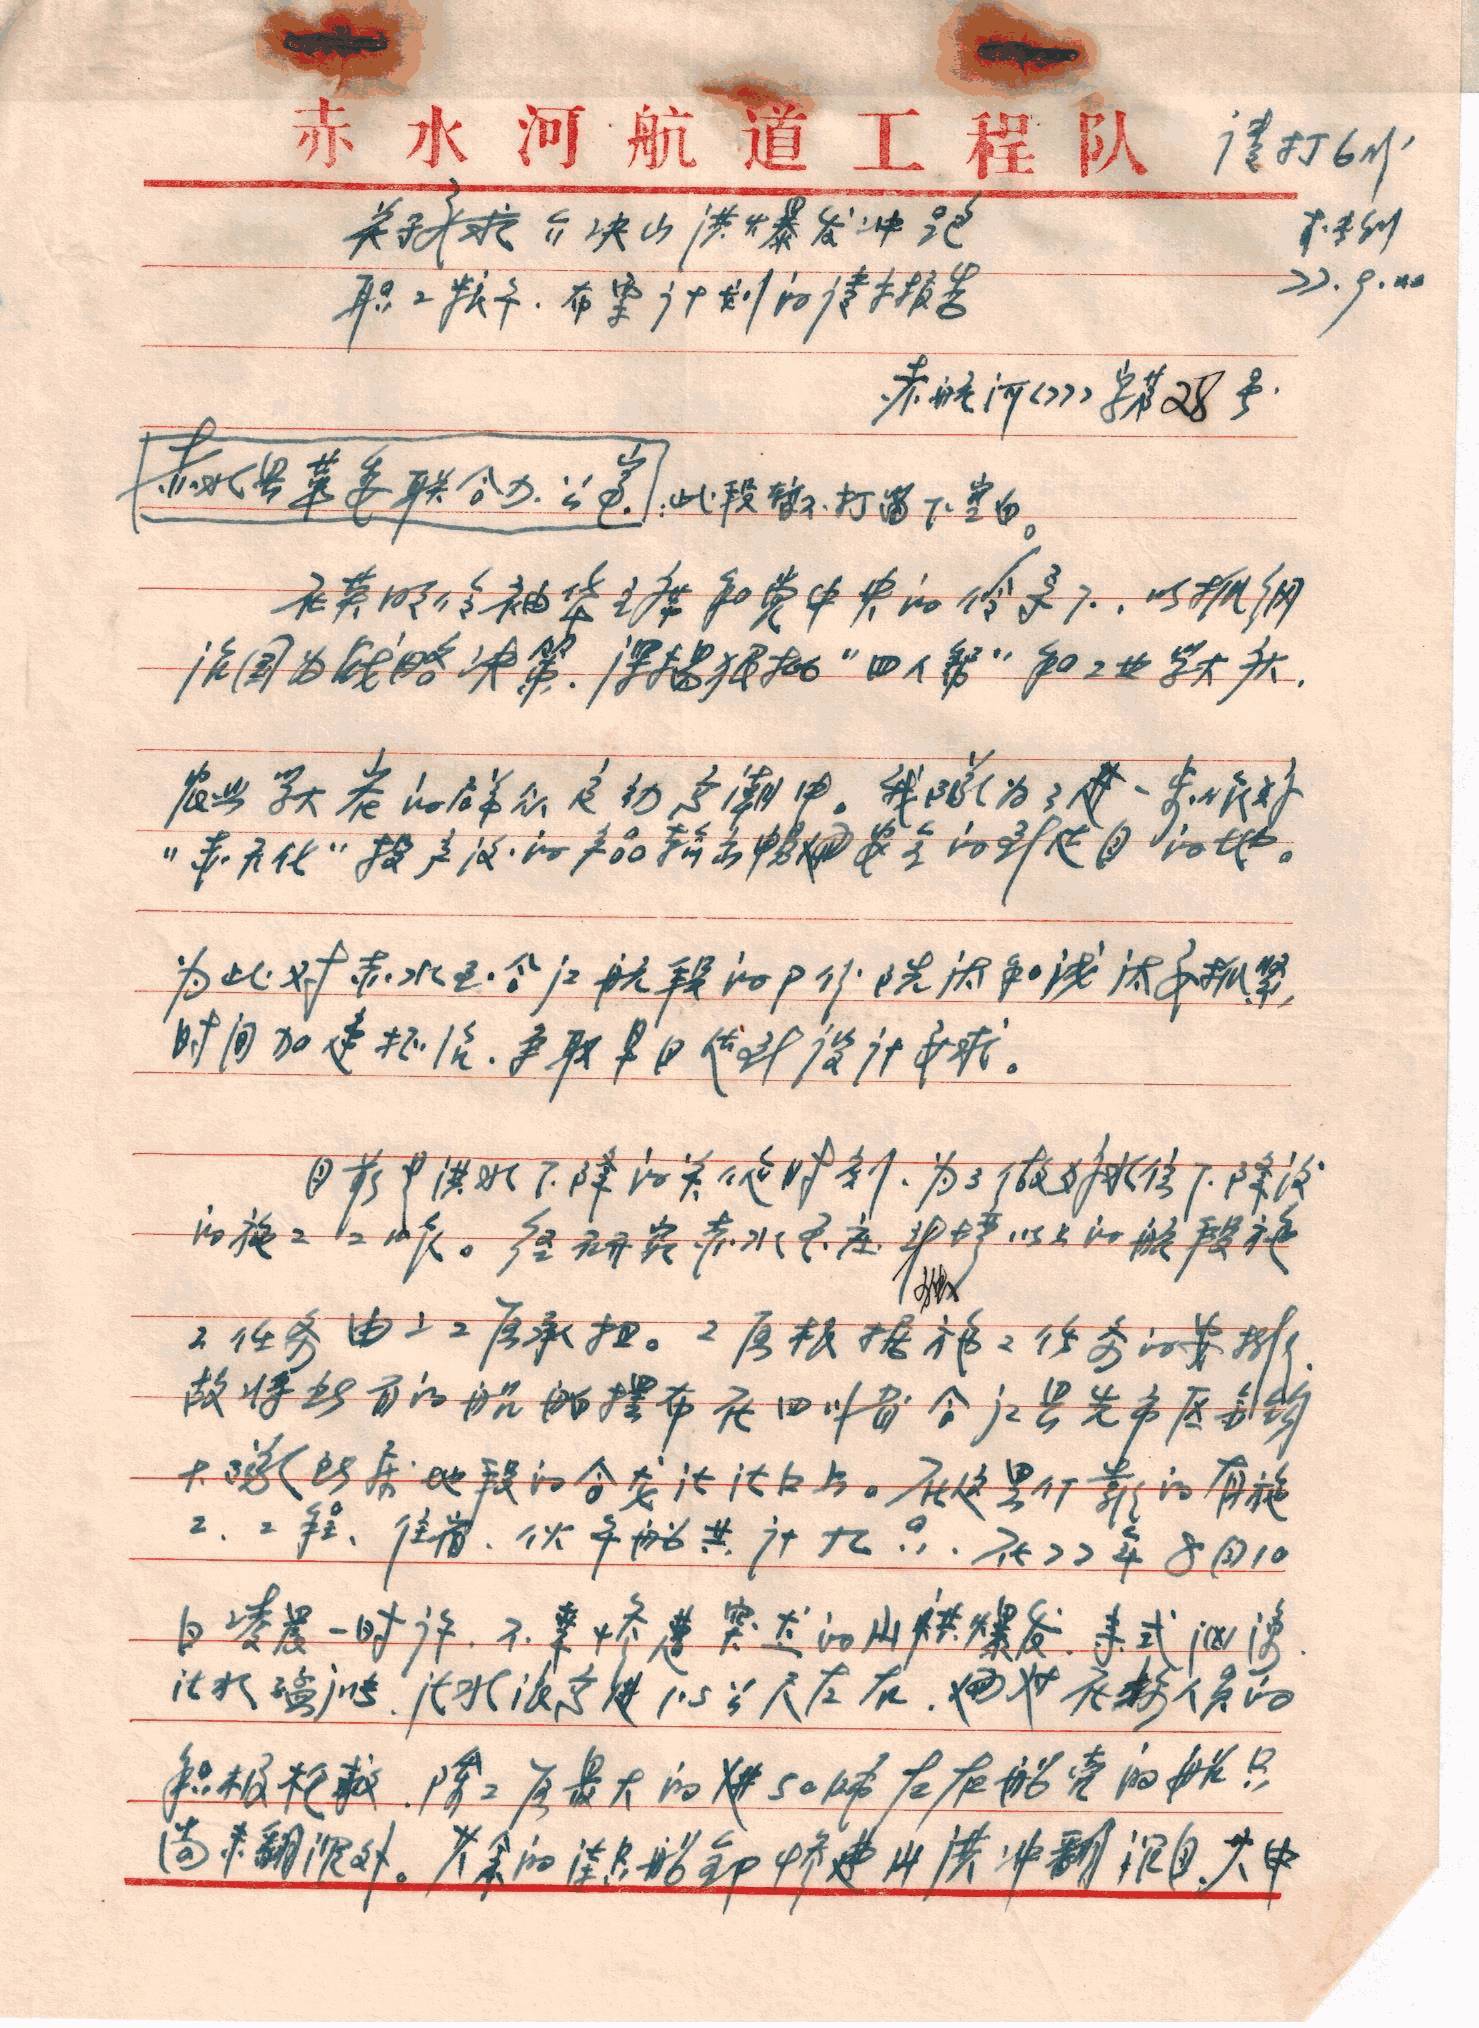 赤水河航道工程队
请打6份
77.9.
关于要求解决山洪暴发冲跑
职工粮食、布票计划的请求报告
赤航河(77)字第28号
赤水县革委联合办公室：此段暂不打留下空白。
在英明领袖华主席和党中央的领导下，以抓纲
治国为战略决策，深揭狠批“四人帮”和工业学大庆、
农业学大寨的群众运动高潮中。我队为了进一步作好
“赤天化”投产后的产品输出畅通安全的到达目的地。
为此对赤水至合江航段的 险滩和浅滩要抓紧
时间加速整治，争取早日达到设计要求。
目前是洪水下降的关键时刻，为了做好水位下降后
的施工工作。经研究赤水至 以上的航段施
工任务由二工区承担。工区根据施工任务的安排，
故将所有的船舶摆布在四川省合江县先市区
大队所属地段的 滩口上。在这里停靠的有施
工、工程、住宿、伙食船共计九只，在77年8月10
日凌晨一时许，不幸惨遭突然的山洪爆发，来式汹涌，
水猛涨，水位高达15公尺左右，通过在场人员的
积极抢救，除工区最大的达50吨左右船壳的船只
尚未翻沉外。其余的 只船却惨遭山洪冲翻沉没，其中